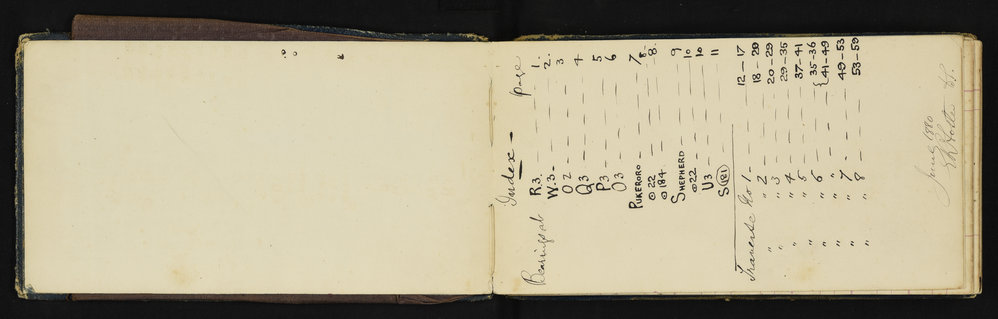 Index — page
Bearings at R.3. — — — — 1.
W.3 — — — — 2.
O 2 — — — — 3
Q3 — — — — 4
P3 — — — — 5
O3 — — — — 6
PUKERORO — — — 7
⊙ 22 — — — — 8.
⊙ 184. — — — — 8.
SHEPHERD — — — 9
⊙22 — — — — 10
U3 — — — — 10
S (181) — — — — 11
Traverse No 1 — — — 12 — 17
" " 2 — — — 18 — 20
" " 3 — — — 20 — 29
" " 4 — — — 29 — 35
" " 5 — — — 37 — 41
" " 6 — — — { 35 — 36
41 — 49
" " 7 — — — 49 — 53
" " 8 — — — 53 — 59
June 1880